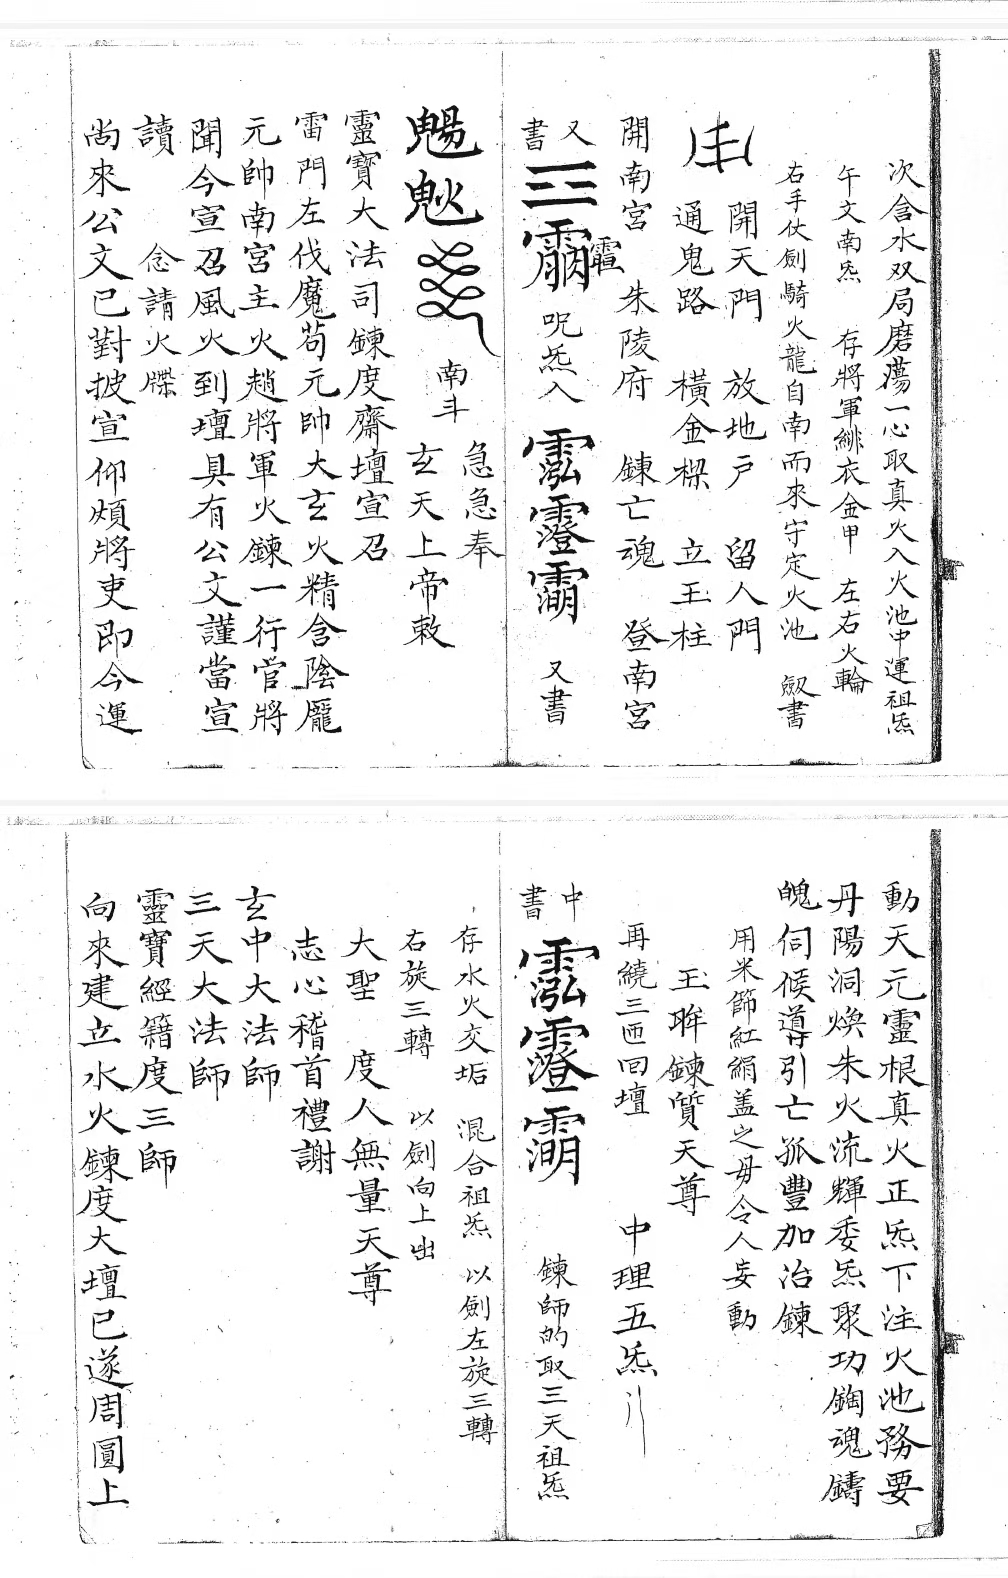 次含水双局磨蕩一心取真火入火池中運祖炁
午文南炁 存將軍緋衣金甲 左右火輪
右手仗劍騎火龍自南而來守定火池 劔書
開天門 放地戶 留人門
通鬼路 橫金樑 立玉柱
開南宮 朱陵府 鍊亡魂 登南宮
又書 三 霱 呪炁入 霐霯霸 又書
南斗 急急奉
玄天上帝敕
靈寶大法司鍊度齋壇宣召
雷門左伐魔苟元帥大玄火精含陰龐
元帥南宮主火趙將軍火鍊一行官將
聞今宣召風火到壇具有公文謹當宣
讀 念請火牒
尚來公文已對披宣仰煩將吏即今運
動天元靈根真火正炁下注火池務要
丹陽洞煥朱火流輝委炁聚功鎬魂鑄
魄伺候導引亡孤豐加治鍊
用米篩紅絹盖之毋令人妄動
玉眸鍊質天尊
再繞三匝回壇 中理五炁
中書 霐霯 鍊師的取三天祖炁
存水火交垢 混合祖炁 以劍左旋三轉
右旋三轉 以劍向上出
大聖 度人無量天尊
志心稽首禮謝
玄中大法師
三天大法師
靈寶經籍度三師
向來建立水火鍊度大壇已遂周圓上